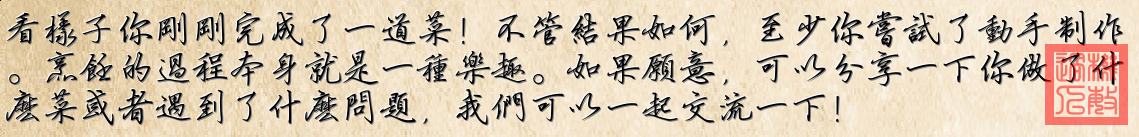 看樣子你剛剛完成了一道菜！不管結果如何，至少你嘗試了動手制作
。烹飪的過程本身就是一種樂趣。如果願意，可以分享一下你做了什
麼菜或者遇到了什麼問題，我們可以一起交流一下！